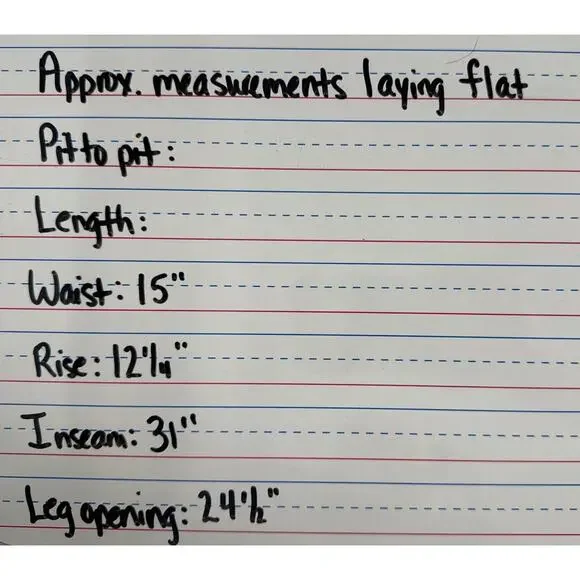 Approx. measurements laying flat
Pit to pit:
Length:
Waist: 15"
Rise: 12 1/4"
Inseam: 31"
Leg opening: 24 1/2"